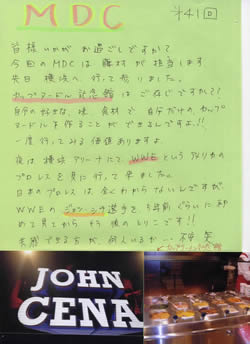 MDC
第41回
皆様いかがお過ごしですか?
今回のMDCは藤村が担当します
先日 横浜へ行って参りました。
カップヌードル記念館はご存じですか??
自分の好きな味、食材で自分だけのカップ
ヌードルを作ることができるんですよ!!
一度行ってみる価値ありますよ
夜は横浜アリーナにてWWEというアメリカの
プロレスを見に行って来ました。
日本のプロレスは全くわからないんですが、
WWEのジョン・シナ選手を5年前ぐらいに初
めて見てから
共感できる方が、何人いるか…
JOHN
CENA